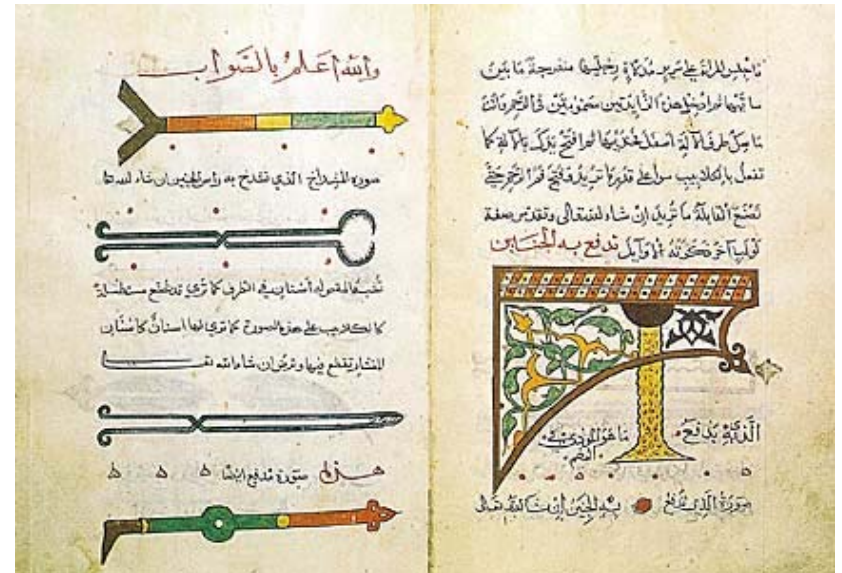 واجلس المراة على سرير مدلاة رجليها منفرجة ما بين
ساقيها ثم ادخل هذن الزايدتين مضمومتين فى الرحم وانت
ماسك طرف الالة اسفل فخذيها ثم افتح يدك بالالة كما
تفعل بالكلاليب سوا على قدر ما تريد فتح فم الرحم حتى
تصنع القابلة ما تريد ان شاء الله تعالى وتقدس صفة
لولب اخر ذكرته الاوايل تدفع به الجنين
الذي يدفع ما هو
صورة الذي تدفع به الجنين ان شا الله تعالى
والله اعلم بالصواب
صورة المشداخ الذي تشدخ به راس الجنين ان شاء الله
اسنان في الطرف كما ترى وقد تصنع مستطيلة
كالكلاليب على هذه الصورة كما ترى لها اسنان كاسنان
المنشار يقطع فيها وترض ان شاء الله
هذه صورة مدفع ايضا